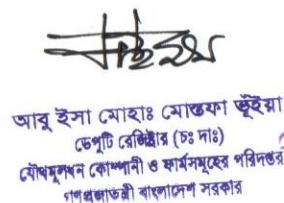 আবু ইসা মোহাঃ মোস্তফা ভূঁইয়া
ডেপুটি রেজিষ্টার (চঃ দাঃ)
যৌথমূলধন কোম্পানী ও ফার্মসমূহের পরিদপ্তর
গণপ্রজাতন্ত্রী বাংলাদেশ সরকার